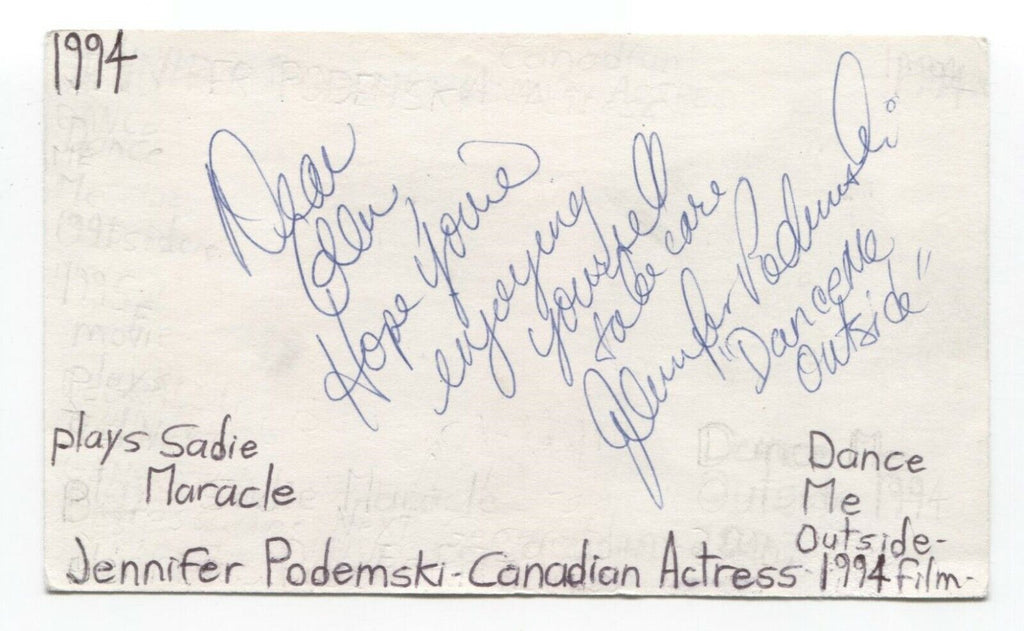 1994
Dear
Ellen
Hope you're
enjoying
yourself
take care
Jennifer Podemski
"Dance Me
Outside"
plays Sadie
Maracle
Dance
Me
Outside-
1994 film-
Jennifer Podemski-Canadian Actress